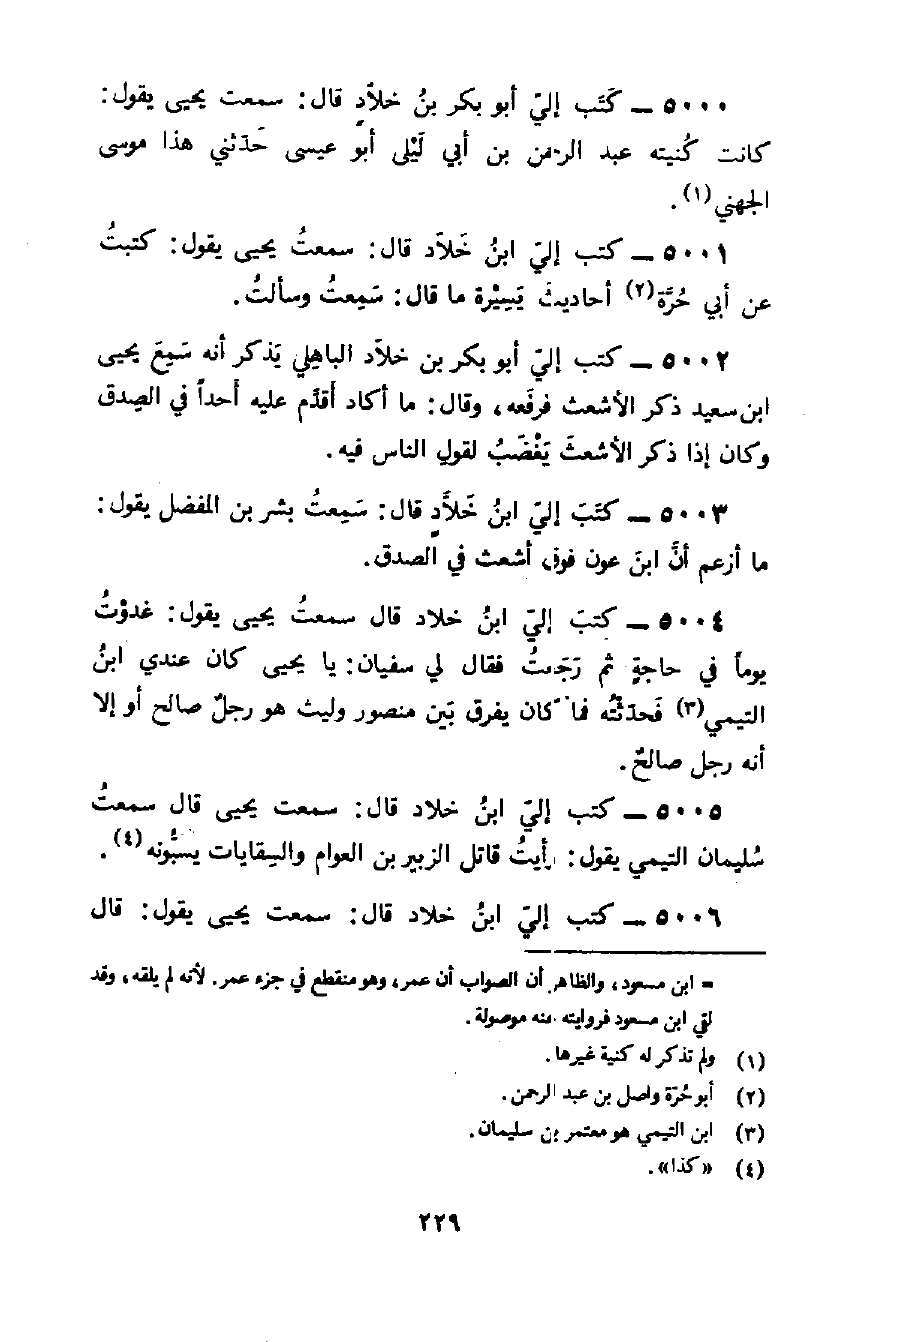 ٥٠٠٠ ــ كَتَب إليّ أبو بكر بنُ خلاَّدٍ قال: سمعت يحيى يقول:
كانت كُنيته عبد الرحمن بن أبي لَيْلى أبو عيسى حَدّثني هذا موسى
الجهني(١).
٥٠٠١ ــ كتب إليّ ابنُ خَلاَّد قال: سمعتُ يحيى يقول: كتبتُ
عن أبي حُرَّة(٢) أحاديثَ يَسِيْرة ما قال: سَمِعتُ وسألتُ.
٥٠٠٢ ــ كتب إليّ أبو بكر بن خلاَّد الباهلي يَذكر أنه سَمِعَ يحيى
ابن سعيد ذكر الأشعث فرفَعه، وقال: ما أكاد أقدِّم عليه أحداً في الصِدق
وكان إذا ذكر الأشعثَ يَغْضَبُ لقولِ الناس فيه.
٥٠٠٣ ــ كَتَبَ إليّ ابنُ خَلاَّدٍ قال: سَمِعتُ بشر بن المفضل يقول:
ما أزعم أنَّ ابنَ عون فوق أشعث في الصدق.
٥٠٠٤ ــ كتبَ إليّ ابنُ خلاد قال سمعتُ يحيى يقول: غدوْتُ
يوماً في حاجةٍ ثم رَجَعتُ فقال لي سفيان: يا يحيى كان عندي ابنُ
التيمي(٣) فَحدّثتُه فما كان يفرق بَين منصور وليث هو رجلٌ صالح أو إلا
أنه رجل صالحٌ.
٥٠٠٥ ــ كتب إليّ ابنُ خلاد قال: سمعت يحيى قال سمعتُ
سُليمان التيمي يقول: رأيتُ قاتل الزبير بن العوام والسِقايات يسبُّونه(٤).
٥٠٠٦ ــ كتب إليّ ابنُ خلاد قال: سمعت يحيى يقول: قال
= ابن مسعود، والظاهر أن الصواب أن عمر، وهو منقطع في جزء عمر. لأنه لم يلقه، وقد
لقي ابن مسعود فروايته عنه موصولة.
(١) ولم تذكر له كنية غيرها.
(٢) أبو حُرّة واصل بن عبد الرحمن.
(٣) ابن التيمي هو معتمر بن سليمان.
(٤) «كذا».
٢٢٩